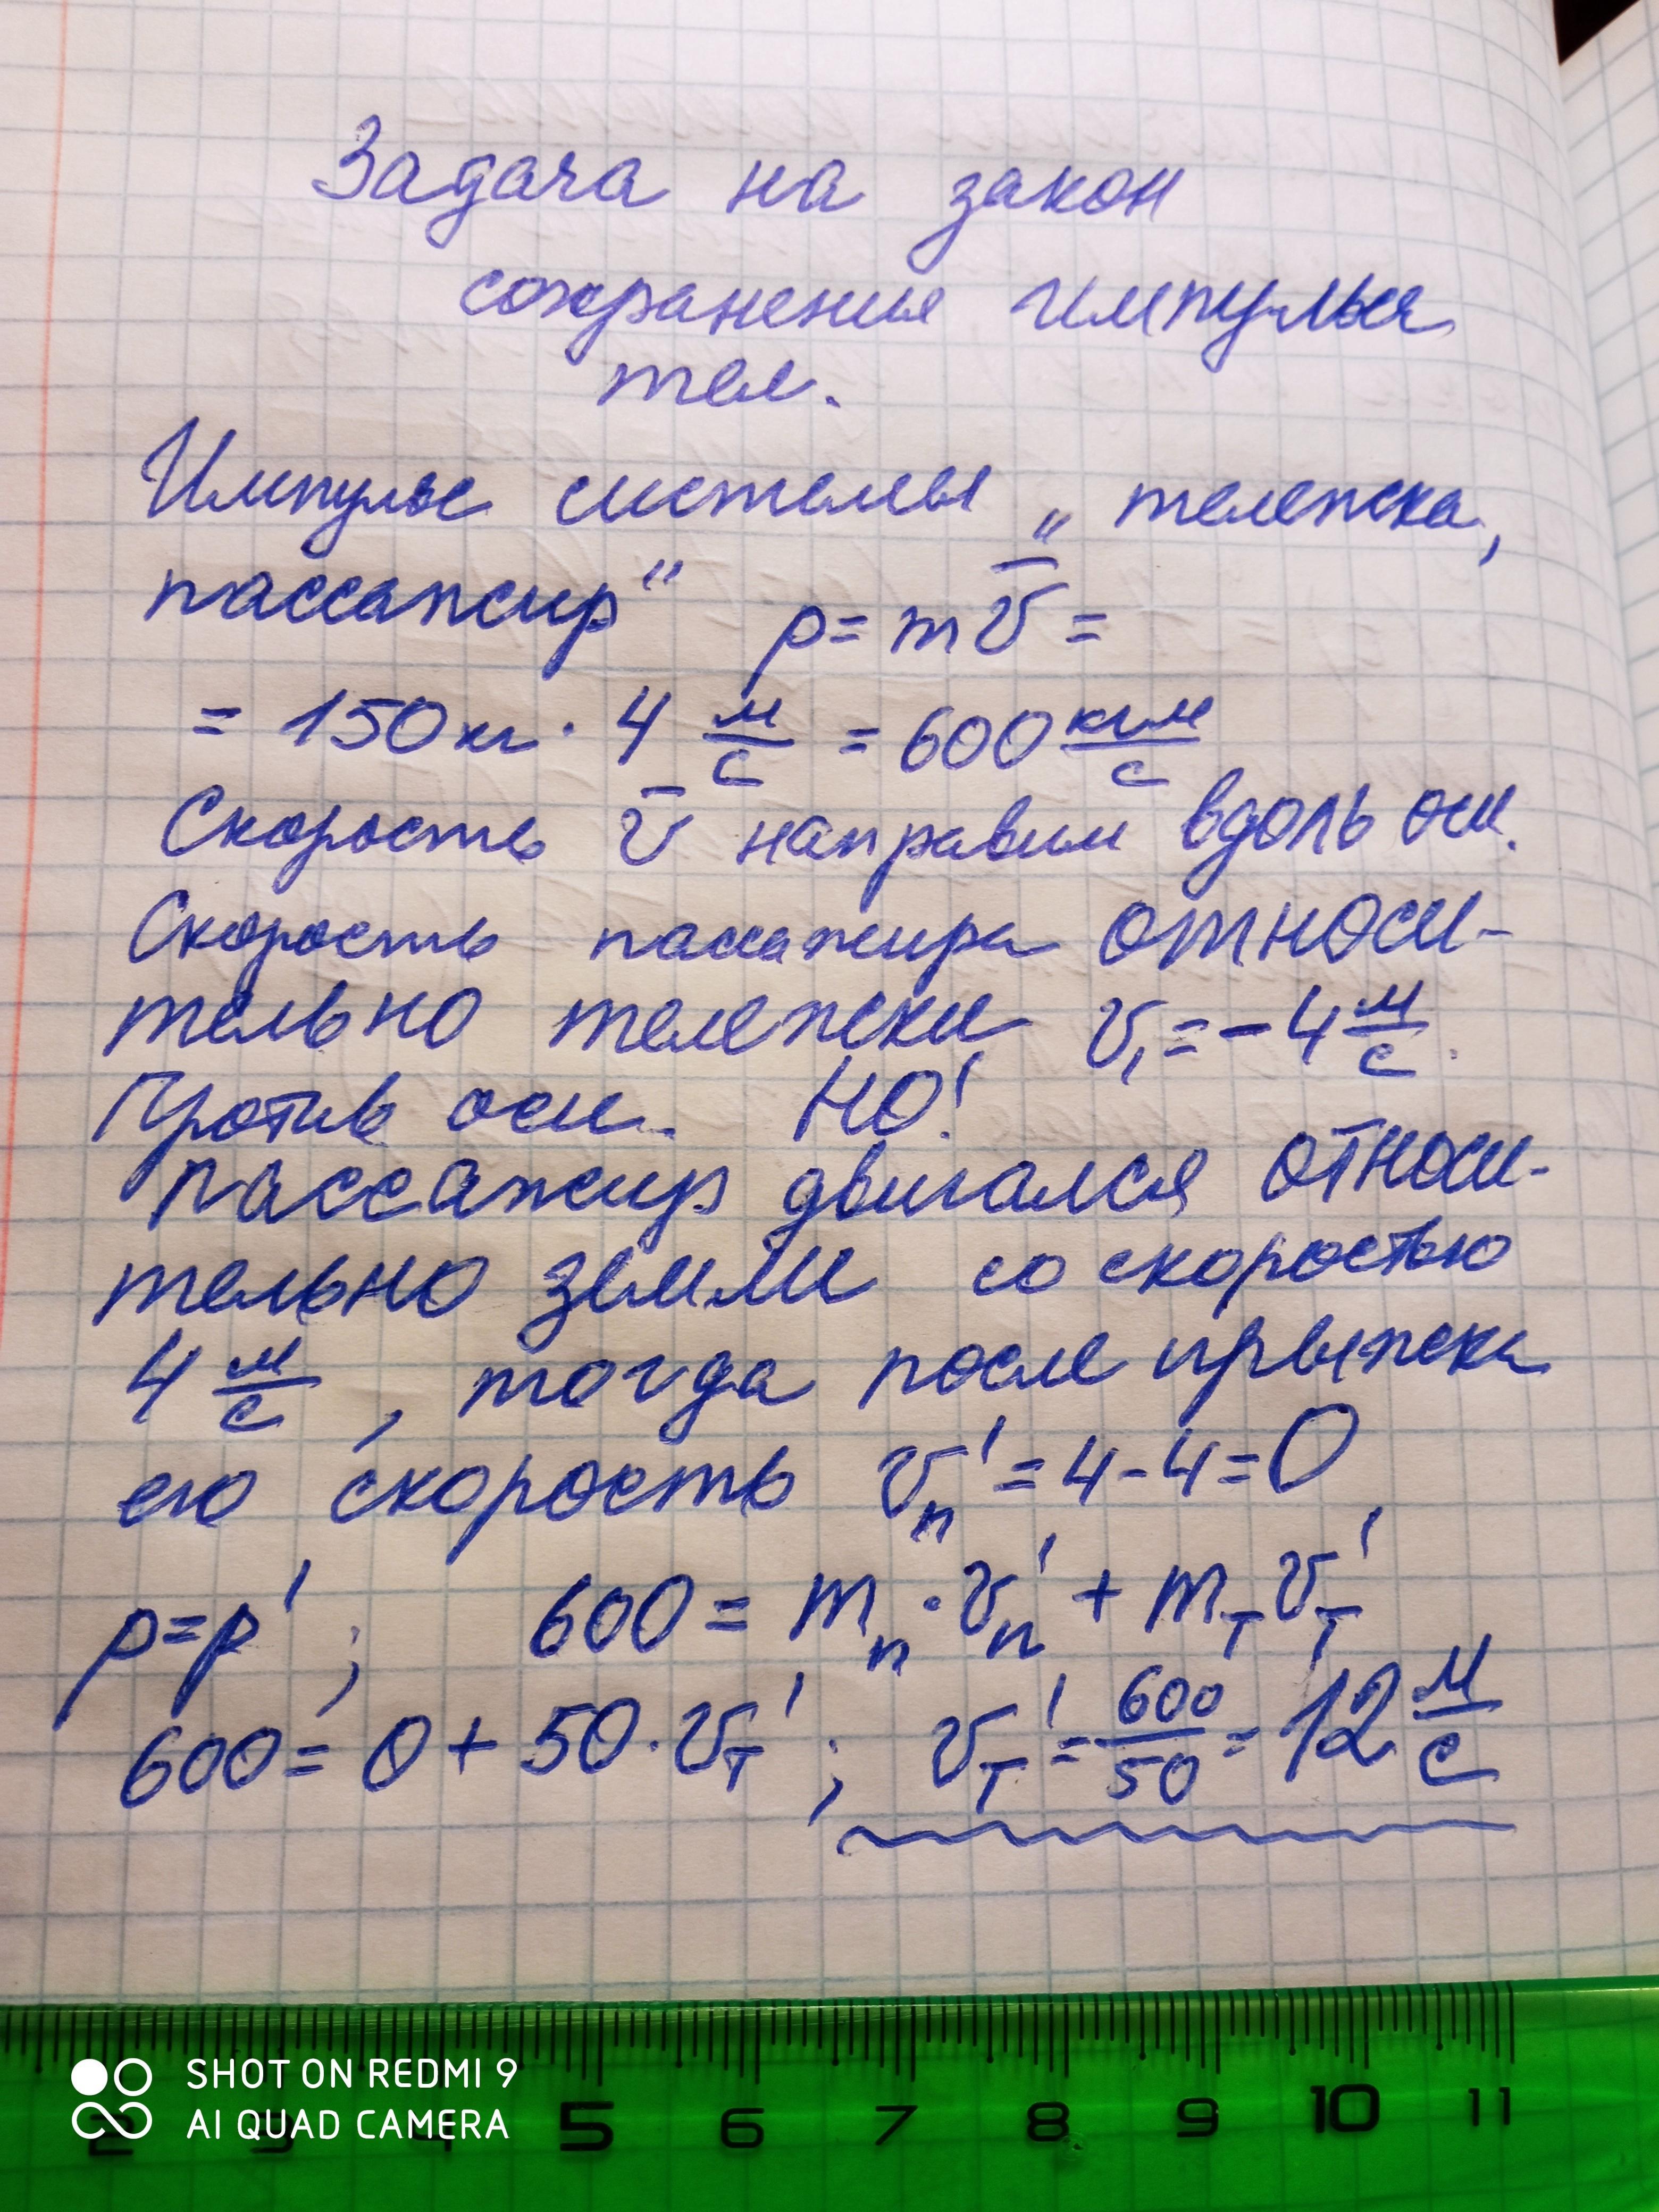 Задача на закон
сохранения импульса
тел.
Импульс системы „тележка,
пассажир“ p = m v̅ =
= 150 кг · 4 м/с = 600 кг·м/с
Скорость v̅ направим вдоль оси.
Скорость пассажира относи-
тельно тележки v₁ = - 4 м/с.
Против оси. НО!
Пассажир двигался относи-
тельно земли со скоростью
4 м/с, тогда после прыжка
его скорость vп' = 4 - 4 = 0
p = p' ; 600 = mп · vп' + mт vт'
600 = 0 + 50 · vт' ; vт' = 600/50 = 12 м/с
SHOT ON REDMI 9
AI QUAD CAMERA
2 3 4 5 6 7 8 9 10 11